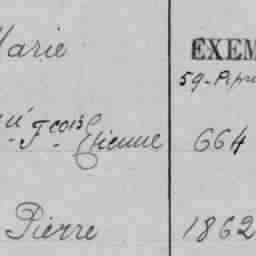 Marie EXEM
59-Pipri
Fcois Etienne 664
Pierre 1862